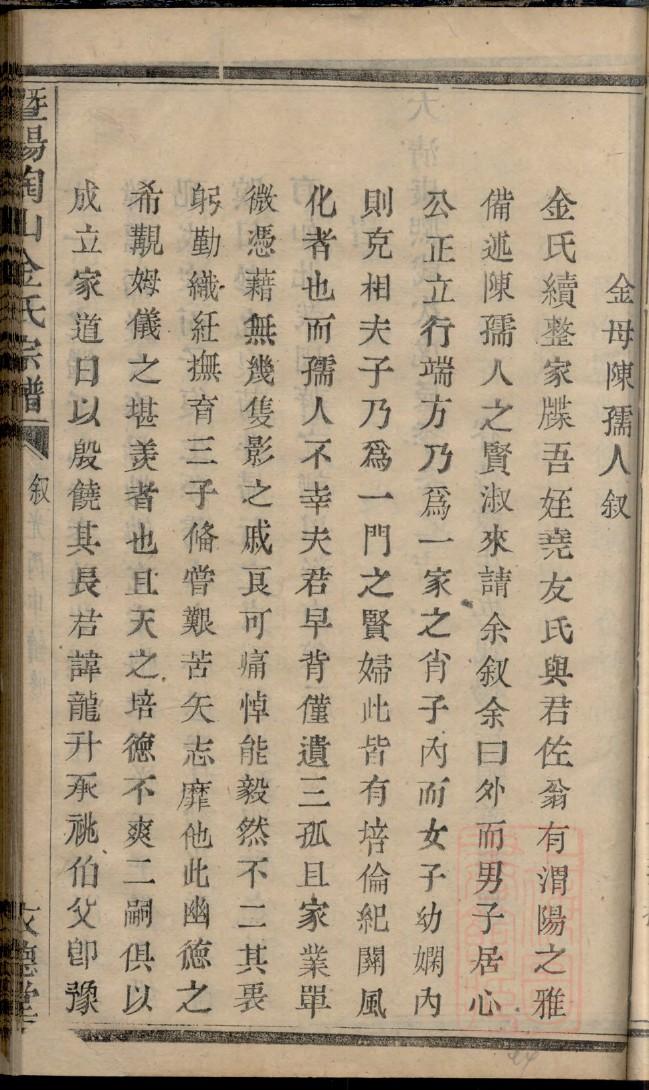 金母陳孺人叙
金氏續整家牒吾姪堯友氏與君佐翁有渭陽之雅
備述陳孺人之賢淑來請余叙余曰外而男子居心
公正立行端方乃爲一家之肖子內而女子幼嫻內
則克相夫子乃爲一門之賢婦此皆有培倫紀關風
化者也而孺人不幸夫君早背僅遺三孤且家業單
微憑藉無幾隻影之戚良可痛悼能毅然不二其衷
躬勤織紝撫育三子俻嘗艱苦矢志靡他此幽德之
希覯姆儀之堪羡者也且天之培德不爽二嗣俱以
成立家道日以殷饒其長君諱龍升承祧伯父卽豫
暨陽陶山金氏宗譜
叙